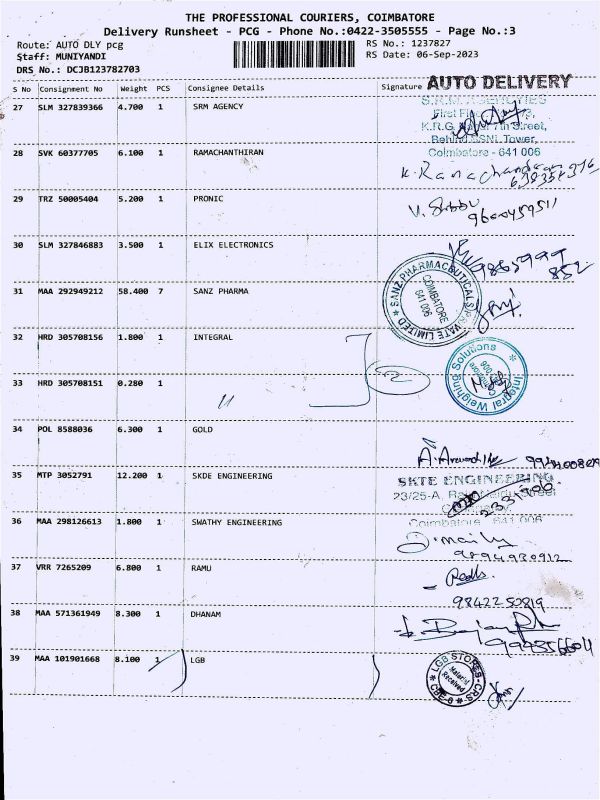 THE PROFESSIONAL COURIERS, COIMBATORE
Delivery Runsheet - PCG - Phone No.:0422-3505555 - Page No.:3
Route: AUTO DLY pcg RS No.: 1237827
Staff: MUNIYANDI RS Date: 06-Sep-2023
DRS No.: DCJB123782703
S No Consignment No Weight PCS Consignee Details Signature AUTO DELIVERY
27 SLM 327839366 4.700 1 SRM AGENCY
K.R.G. 7th Street,
Behind BSNL Tower,
Coimbatore - 641 006
28 SVK 60377705 6.100 1 RAMACHANTHIRAN
K. Ramachandran
29 TRZ 50005404 5.200 1 PRONIC
9600459511
30 SLM 327846883 3.500 1 ELIX ELECTRONICS
9865999
852
31 MAA 292949212 58.400 7 SANZ PHARMA
SANZ PHARMACEUTICALS PRIVATE LIMITED
COIMBATORE
641 006
32 HRD 305708156 1.800 1 INTEGRAL
Integral Weighing Solutions
33 HRD 305708151 0.280 1 "
34 POL 8588036 6.300 1 GOLD
35 MTP 3052791 12.200 1 SKDE ENGINEERING
SKTE ENGINEERING
23/25-A, Street
Coimbatore - 641 006
36 MAA 298126613 1.800 1 SWATHY ENGINEERING
9894930912
37 VRR 7265209 6.800 1 RAMU
9842250819
38 MAA 571361949 8.300 1 DHANAM
39 MAA 101901668 8.100 1 LGB
LGB STORES-CRS
Material
Received
CBE-6